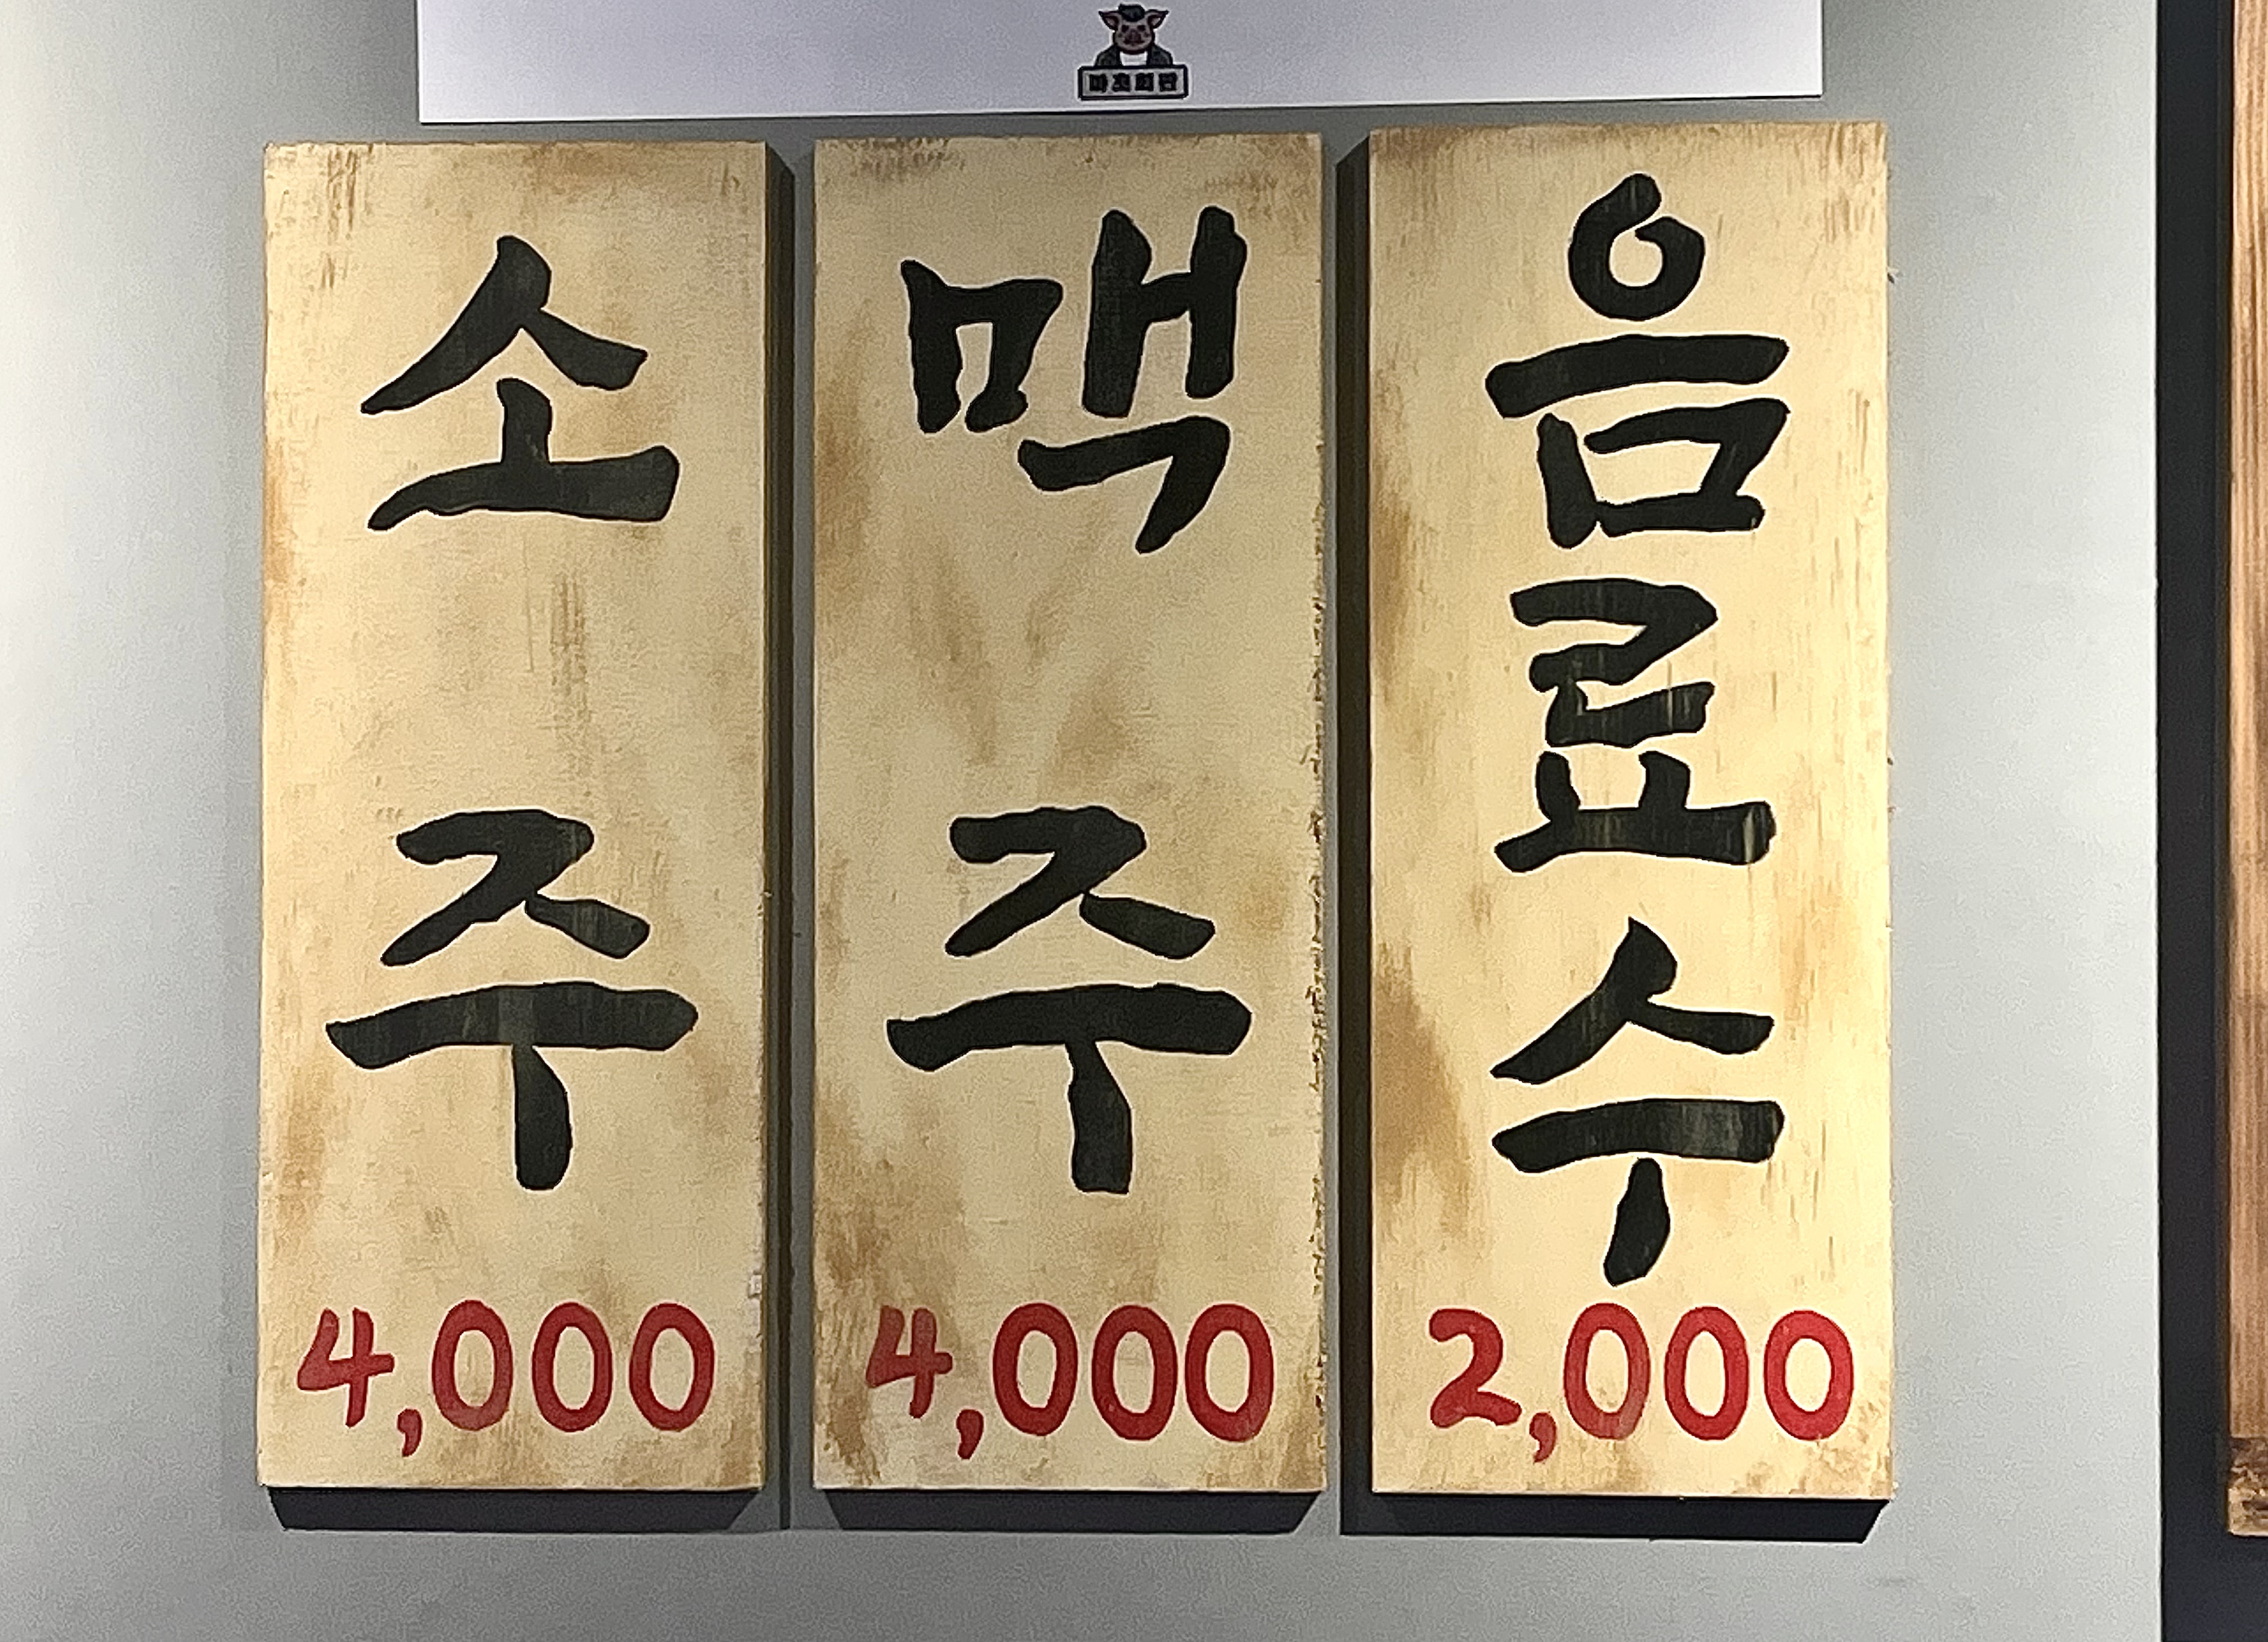 소주
4,000
맥주
4,000
음료수
2,000